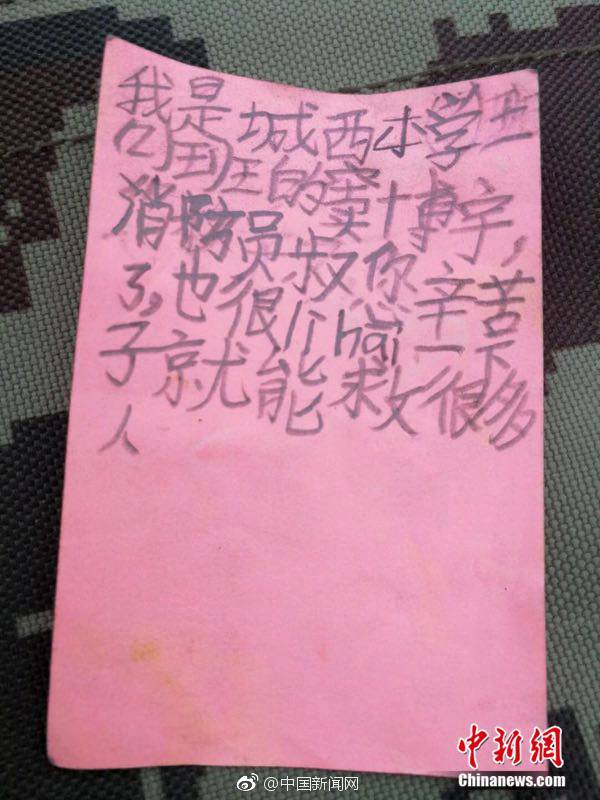 我是城西小学
班的窦博宇,
消防员叔 你 辛苦
了,也很 hai 一下
子就能救很多
人
@中国新闻网
中新網
Chinanews.com